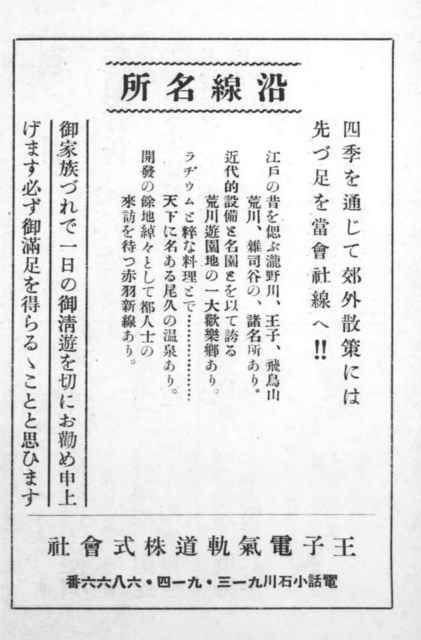 沿線名所
四季を通じて郊外散策には
先づ足を當會社線へ!!
江戸の昔を偲ぶ瀧野川、王子、飛鳥山
荒川、雜司谷の、諸名所あり。
近代的設備と名園とを以て誇る
荒川遊園地の一大歡樂郷あり。
ラヂウムと粹な料理とで………………
天下に名ある尾久の温泉あり。
開發の餘地綽々として都人士の
來訪を待つ赤羽新線あり。
御家族づれで一日の御淸遊を切にお勸め申上
げます必ず御滿足を得らるゝことと思ひます
王子電氣軌道株式會社
電話小石川九一三・九一四・六八六六番